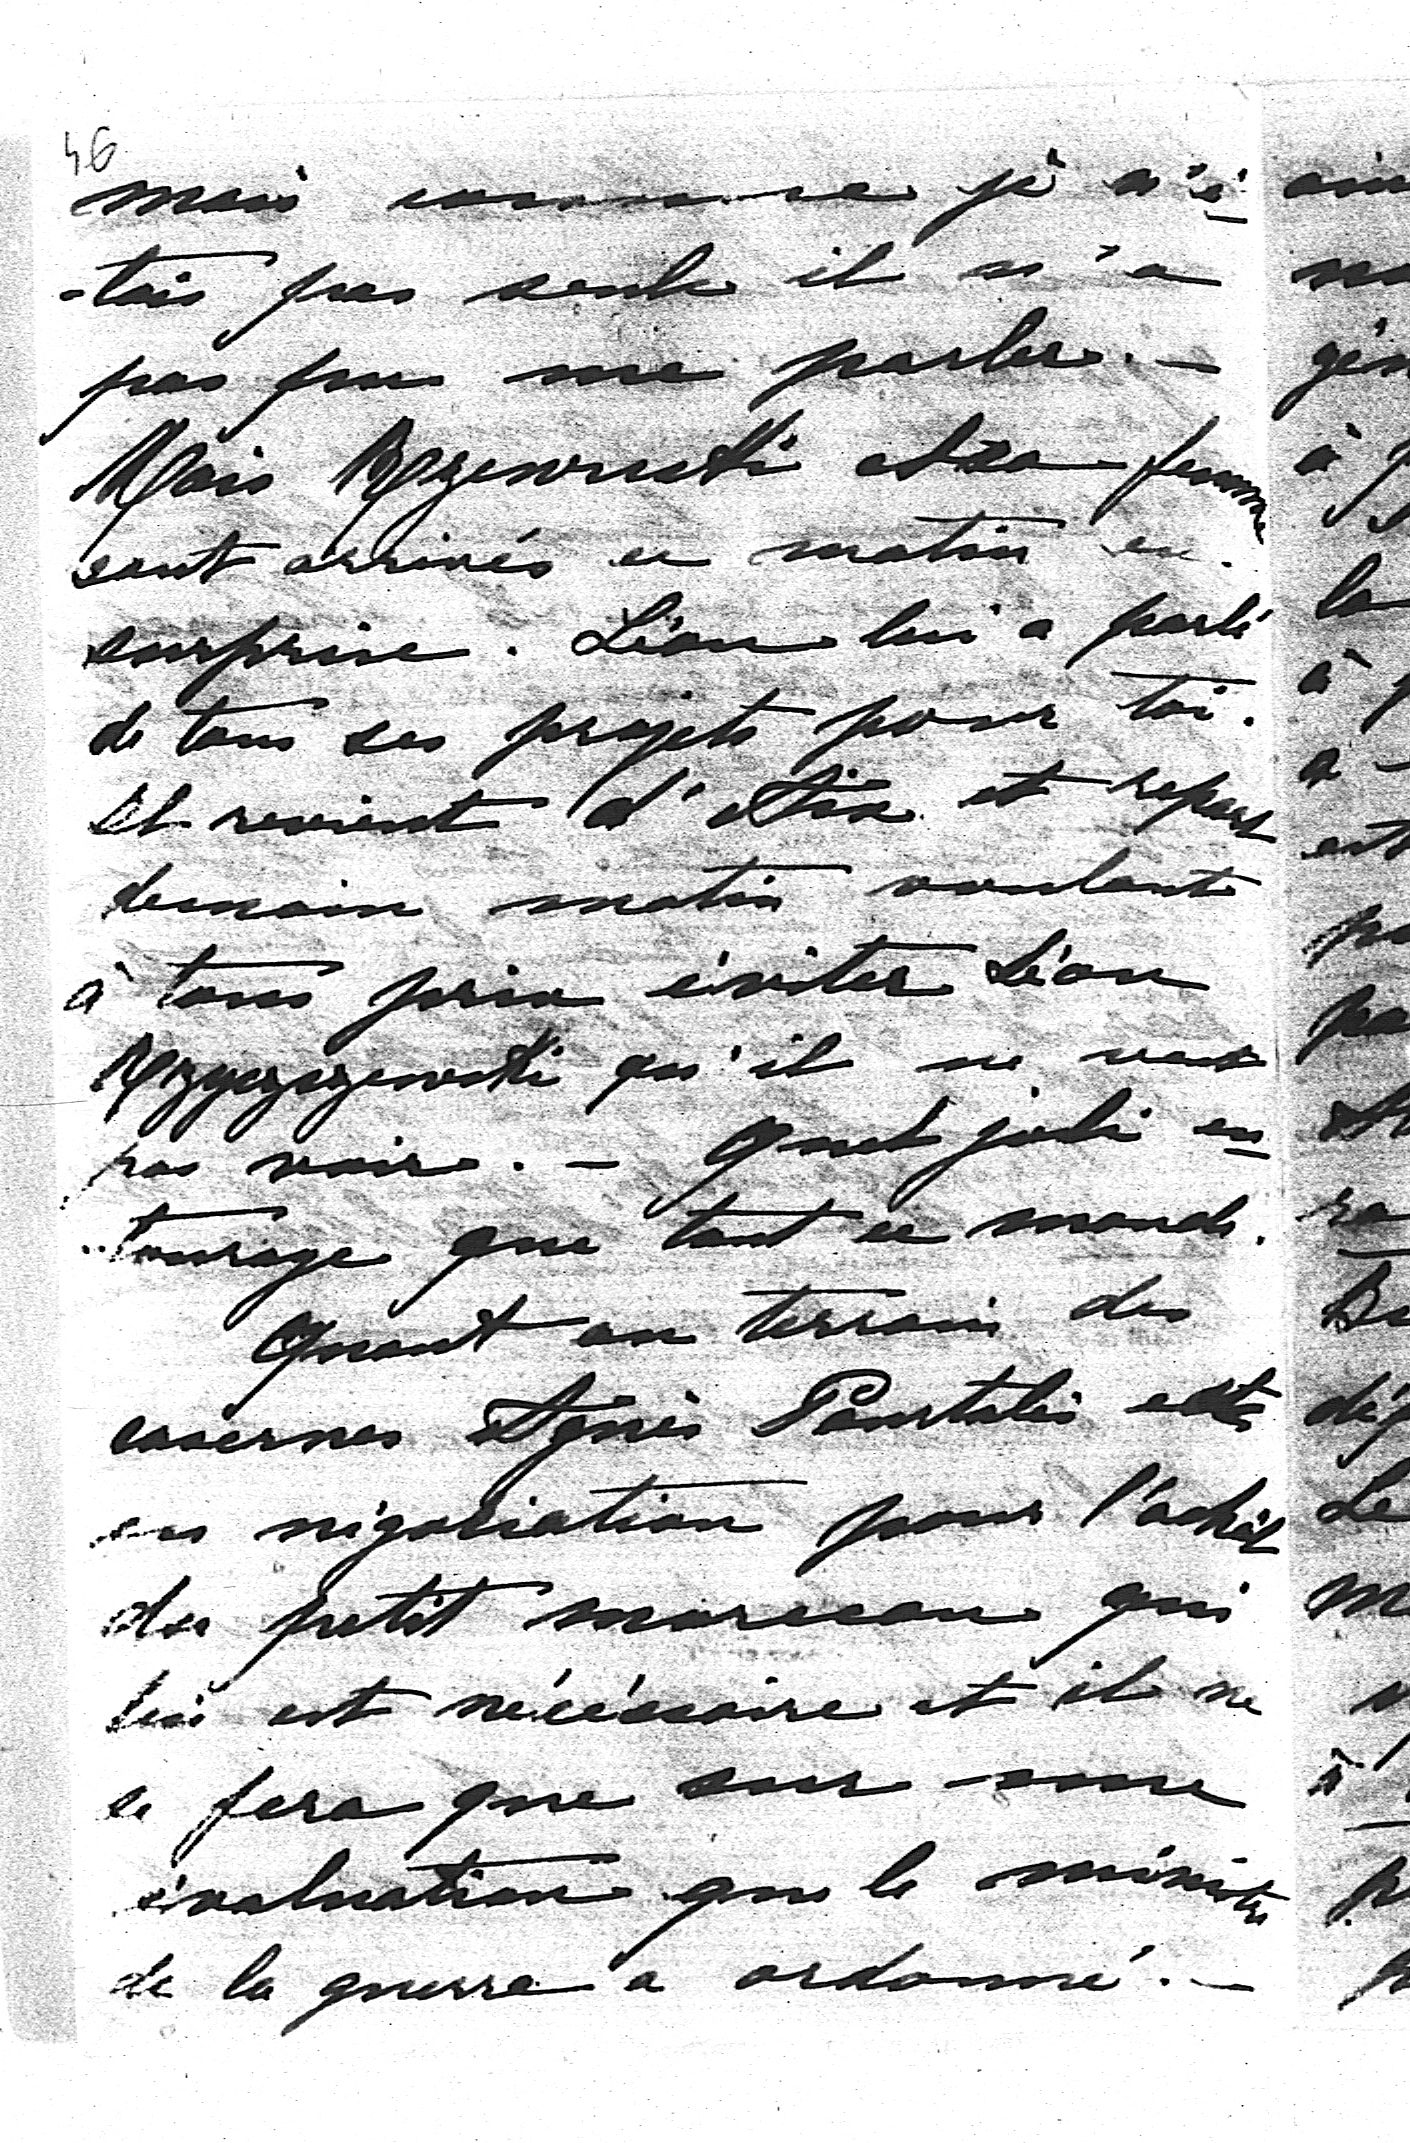 46
mais comme je n'é
-tais pas seule il n'a
pas pu me parler. -
Mais Rzewuski et sa femme
sont arrivés ce matin en
surprise. Léon lui a parlé
de tous ses projets pour toi.
Il revient d'Aix et repart
demain matin voulant
à tous prix éviter Léon
qu'il ne veut
pas voir. - Quel joli en
-tourage que tout ce monde.
Quant au terrain des
casernes Agnès Pourtalès est
en négociation pour l'achat
du petit morceau qui
lui est nécéssaire et il ne
se fera que sur une
évaluation que le ministre
de la guerre a ordonné. -